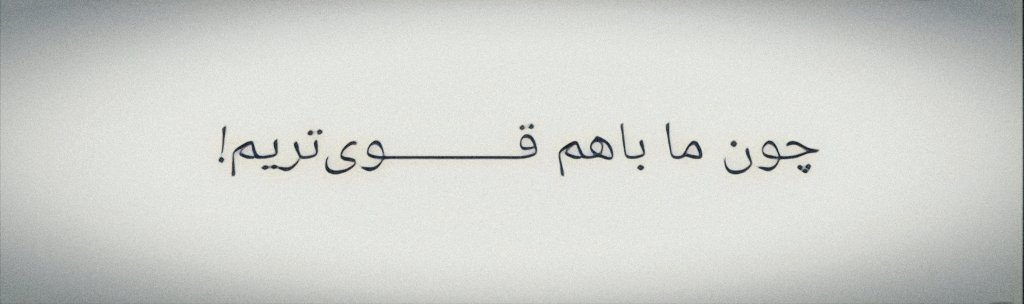 چون ما باهم قـــــــــوی‌تریم!